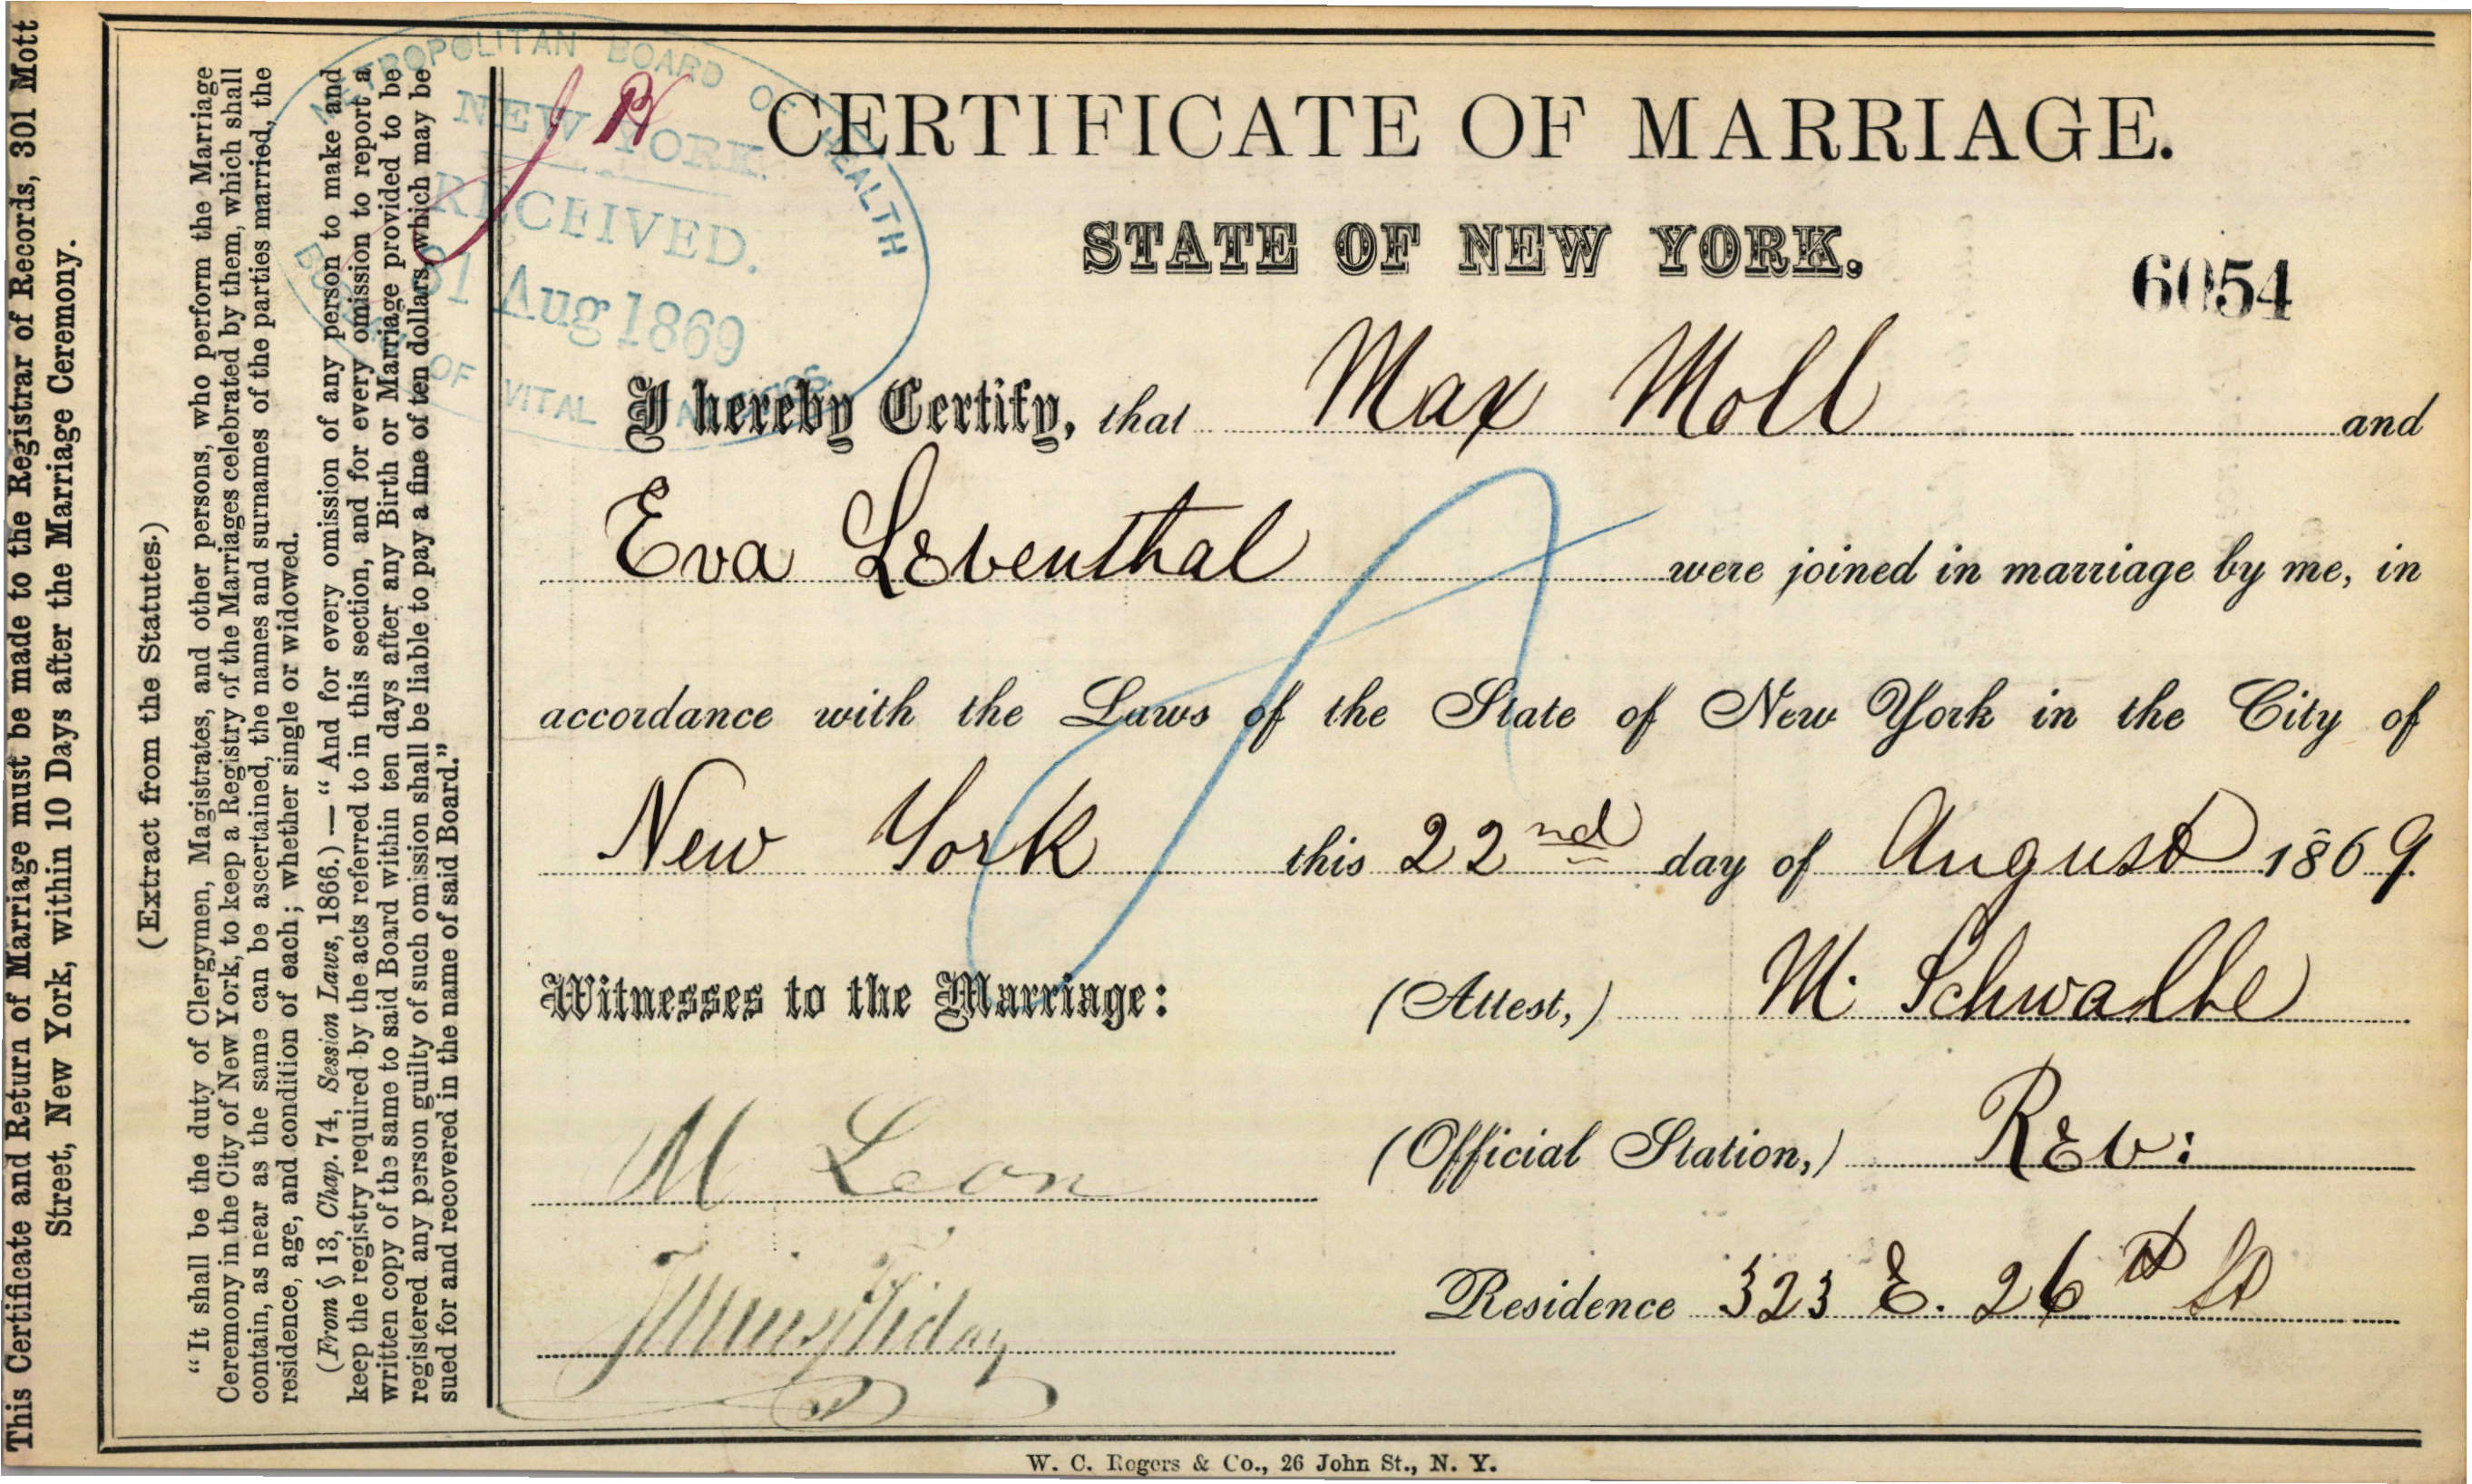 This Certificate and Return of Marriage must be made to the Registrar of Records, 301 Mott
Street, New York, within 10 Days after the Marriage Ceremony.
(Extract from the Statutes.)
“It shall be the duty of Clergymen, Magistrates, and other persons, who perform the Marriage
Ceremony in the City of New York, to keep a Registry of the Marriages celebrated by them, which shall
contain, as near as the same can be ascertained, the names and surnames of the parties married, the
residence, age, and condition of each; whether single or widowed.
(From § 13, Chap. 74, Session Laws, 1866.) — “And for every omission of any person to make and
keep the registry required by the acts referred to in this section, and for every omission to report a
written copy of the same to said Board within ten days after any Birth or Marriage provided to be
registered any person guilty of such omission shall be liable to pay a fine of ten dollars, which may be
sued for and recovered in the name of said Board.”
METROPOLITAN BOARD OF HEALTH
NEW YORK.
RECEIVED.
31 Aug 1869
BUREAU OF VITAL
CERTIFICATE OF MARRIAGE.
STATE OF NEW YORK.
6054
I hereby Certify, that Max Moll and
Eva Leventhal were joined in marriage by me, in
accordance with the Laws of the State of New York in the City of
New York this 22nd day of August 1869.
Witnesses to the Marriage: (Attest,) M. Schwalbe
M Leon (Official Station,) Rev:
Residence 323 E. 26th St
W. C. Rogers & Co., 26 John St., N. Y.